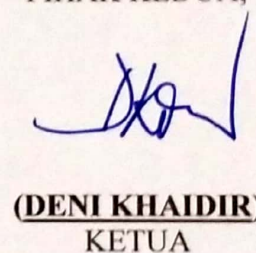 (DENI KHAIDIR)
KETUA